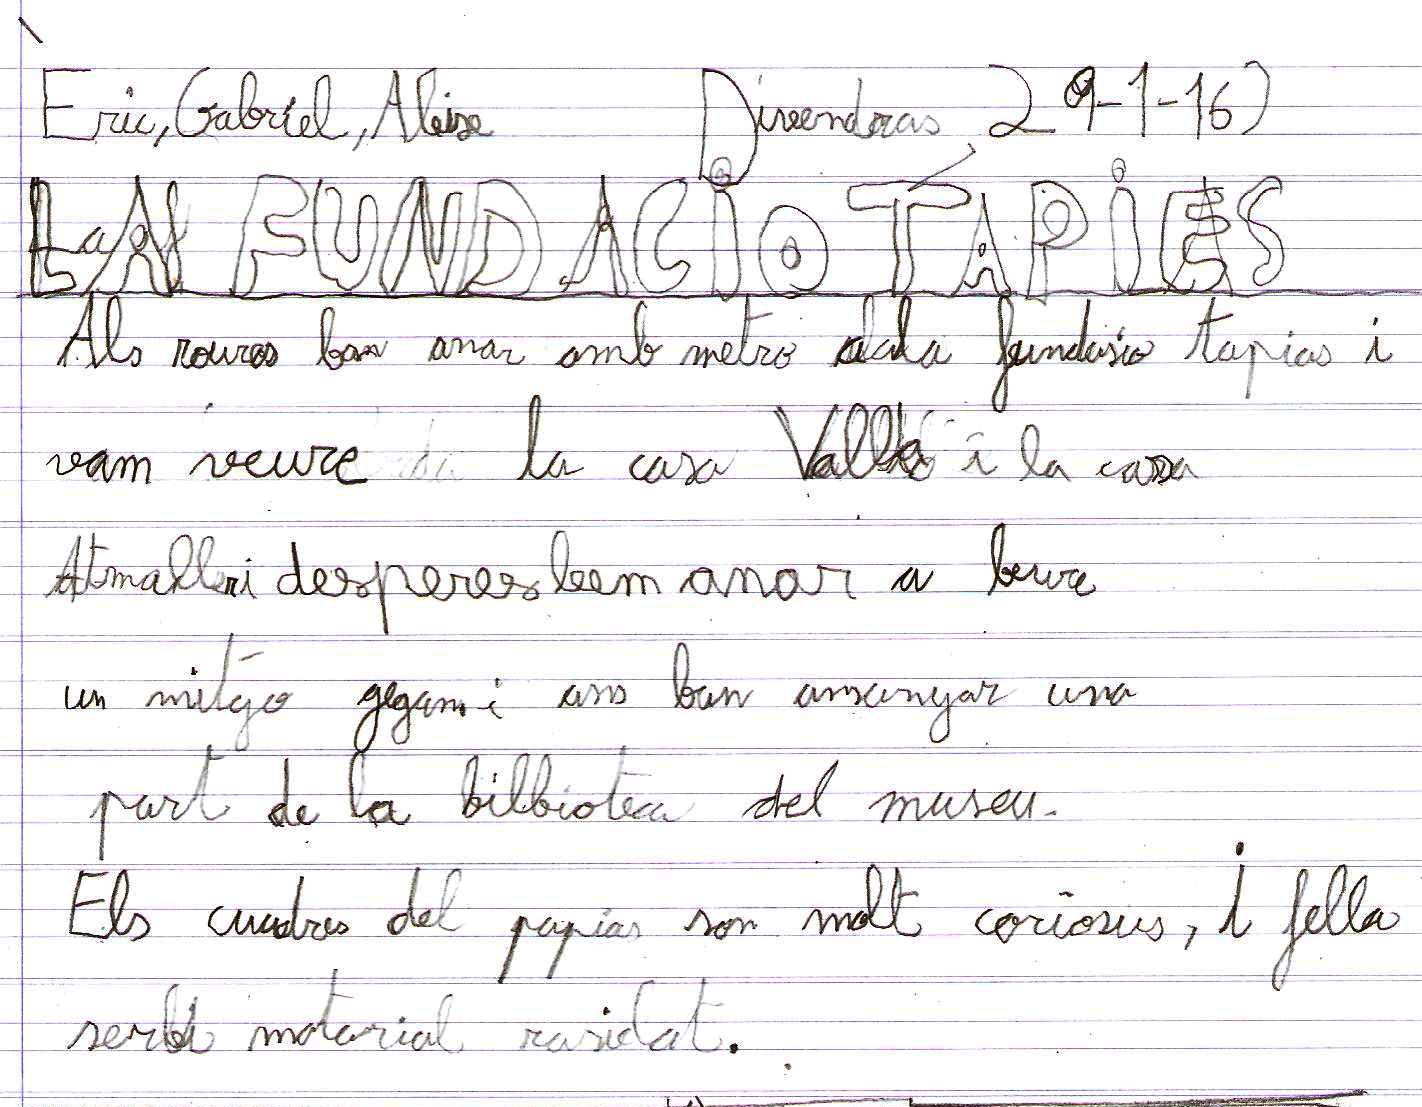 Eric, Gabriel, Aleix Divendras 29-1-16
LA FUNDACIÓ TÀPIES
Als roures ban anar amb metro a la fundasio tapias i
vam veure la casa Vallló i la casa
Atmalleri desperes bem anar a beure
un mitgo gegam i ans ban ansanyar una
part de la bilbioteca del museu.
Els cuadres del papias son molt coriosus, i fella
serbi matarial rasidat.